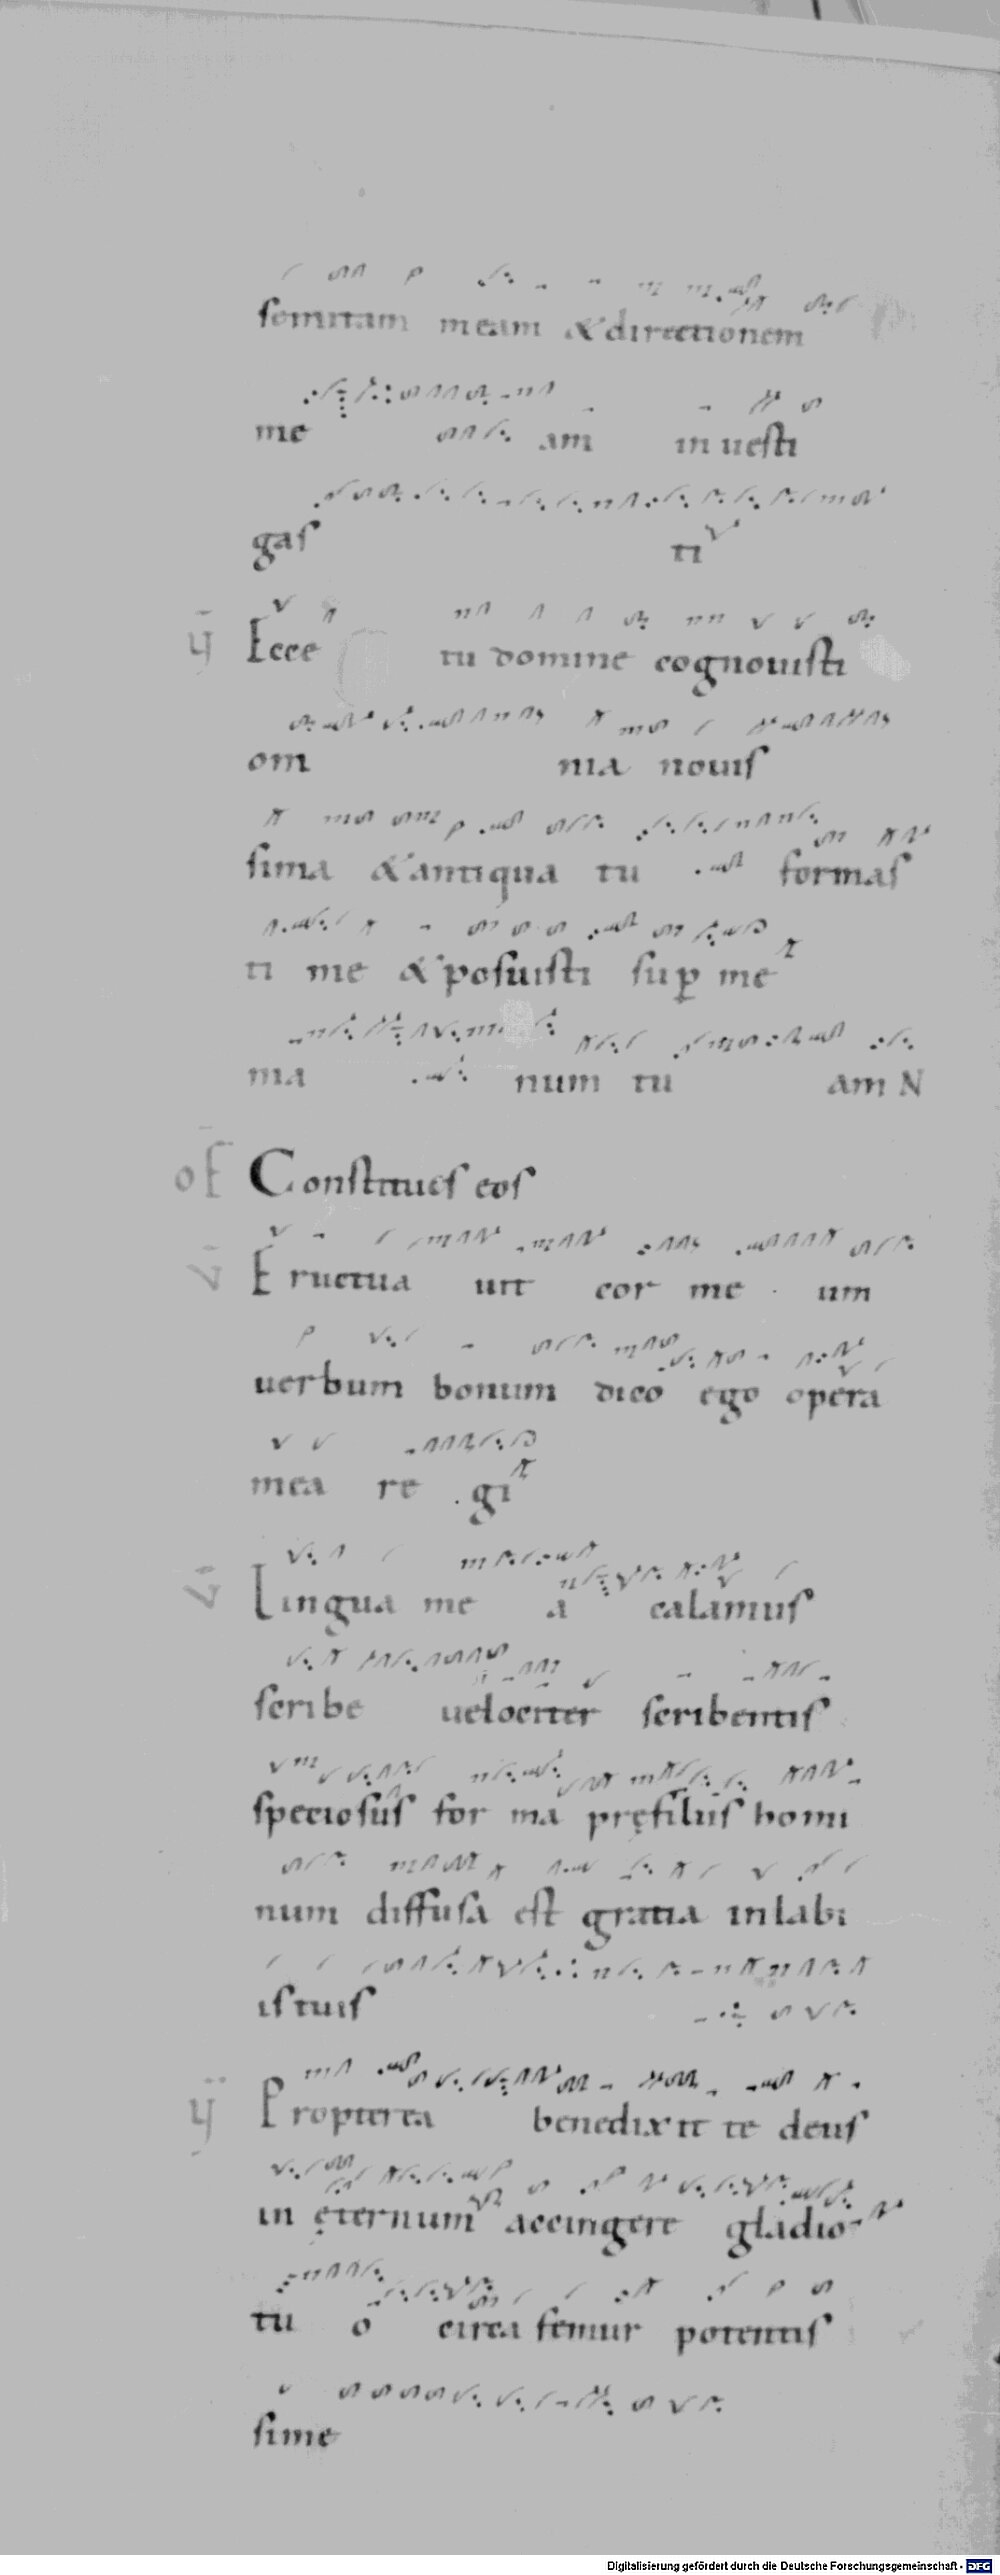 semitam meam & directionem
me am in uesti
gas ti
ÿ Ecce tu domine cognouisti
om nia nouis
sima & antiqua tu formas
ti me & posuisti sup me
ma num tu am N
of Constitues eos
V̄ Eructua uit cor me um
uerbum bonum dico ego opera
mea re gi
V̄ Lingua me a calamus
scribe uelociter scribentis
speciosus for ma pręfiliis homi
num diffusa est gratia inlabi
is tuis
ÿ Propterea benedixit te deus
in ęternum accingere gladio
tu o circa femur potentis
sime
Digitalisierung gefördert durch die Deutsche Forschungsgemeinschaft - DFG